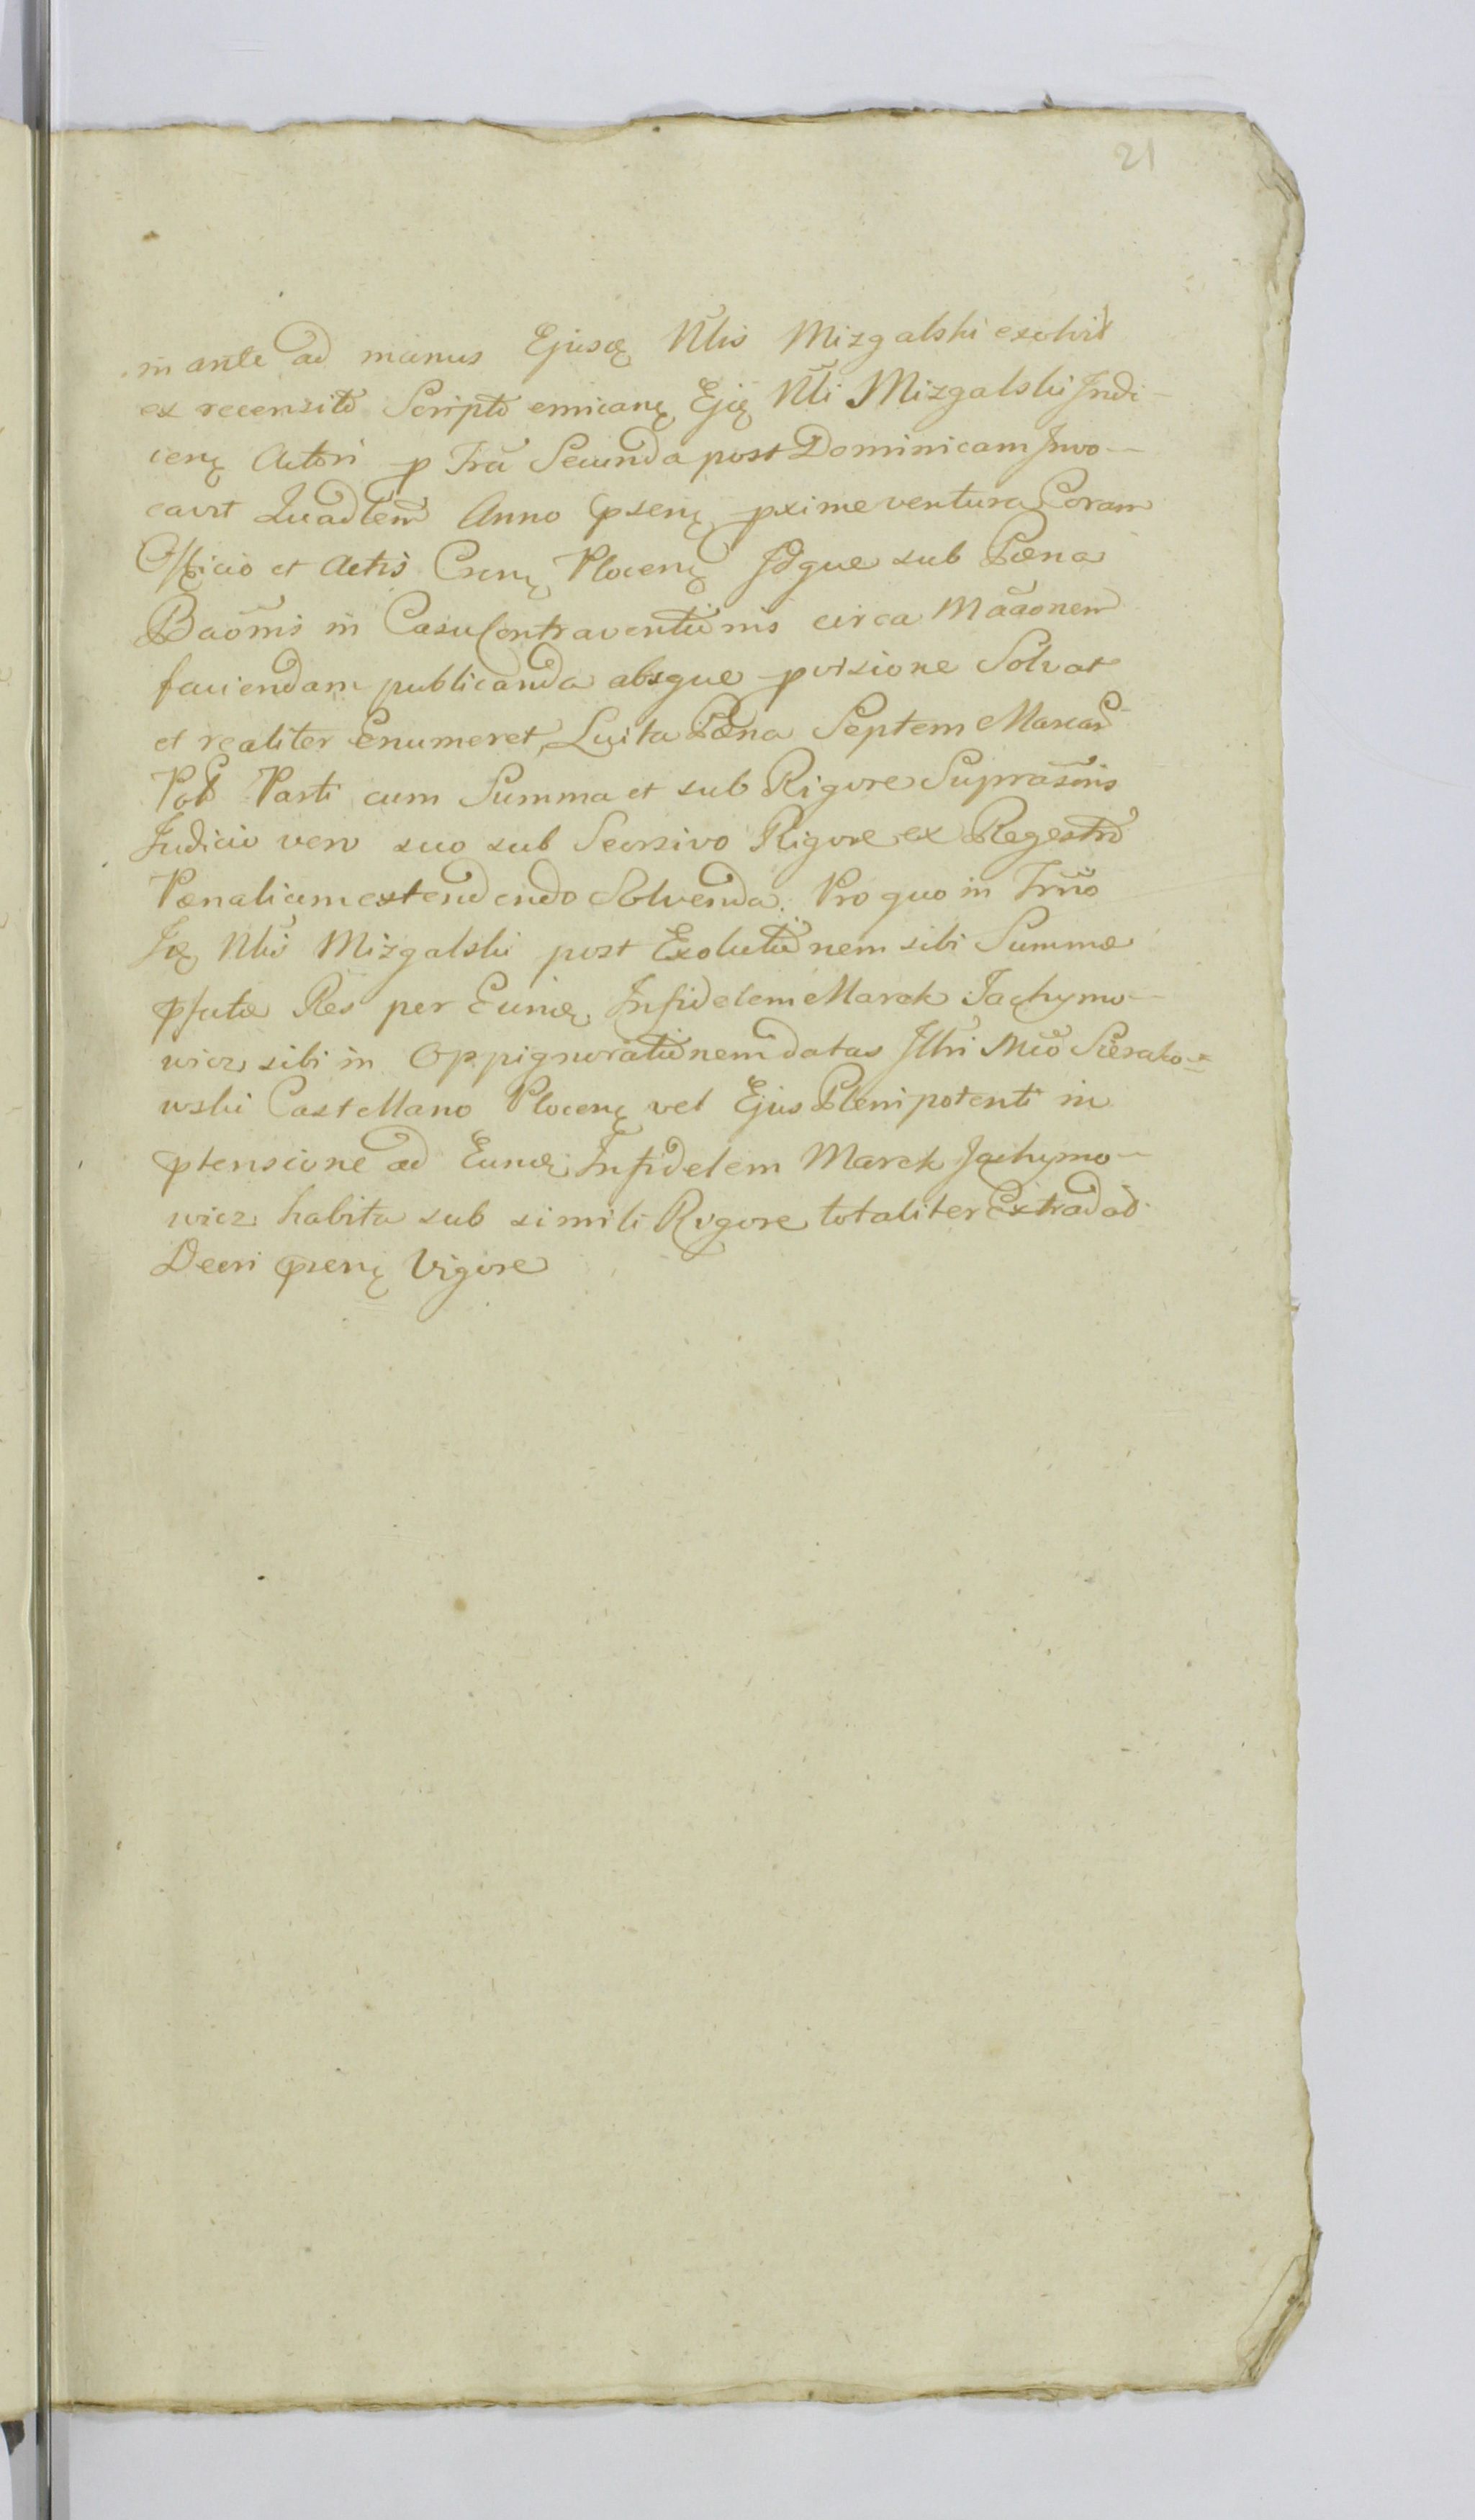 21
in ante ad manus Ejusdę Nlis Mizgalski exolvit
ex recensito Scripto emicanę Ejdę Nli Mizgalski Judi-
cienę Actori p Frã Secunda post Dominicam Invo-
cavit Quadlem Anno pnsenę pxime ventura Coram
Officio et Actis Crenę Plocenę Idque sub Pœna
Baõnis in Casu Contraventionis circa Maãonem
faciendam publicanda absque pvisione Solvat
et realiter Enumeret, Luita Pœna Septem Marcar
Pol Parti cum Summa et sub Rigore Suprascris
Judicio vero suo sub Seorsivo Rigore ex Regestro
Pœnalium extendendo Solvenda. Pro quo in Frño
Idę Nlis Mizgalski post Exolutionem sibi Summæ
pfatæ Res per Eundę Infidelem Marek Jachymo-
wicz sibi in Oppignorationem datas Illri Mco Sierako-
wski Castellano Plocenę vel Ejus Plenipotenti in
ptensione ad Eundę Infidelem Marek Jachymo-
wicz habita sub simili Rigore totaliter Extradad
Decri pnsenę Vigore